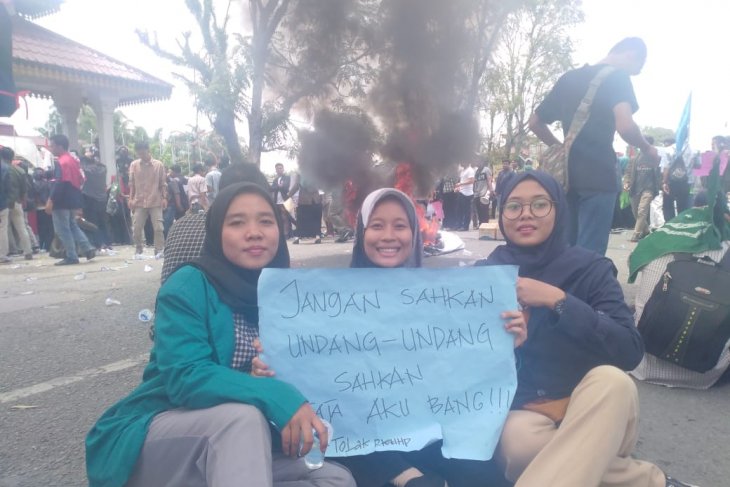 JANGAN SAHKAN
UNDANG-UNDANG
SAHKAN
AKU BANG!!!
TOLAK RKUHP